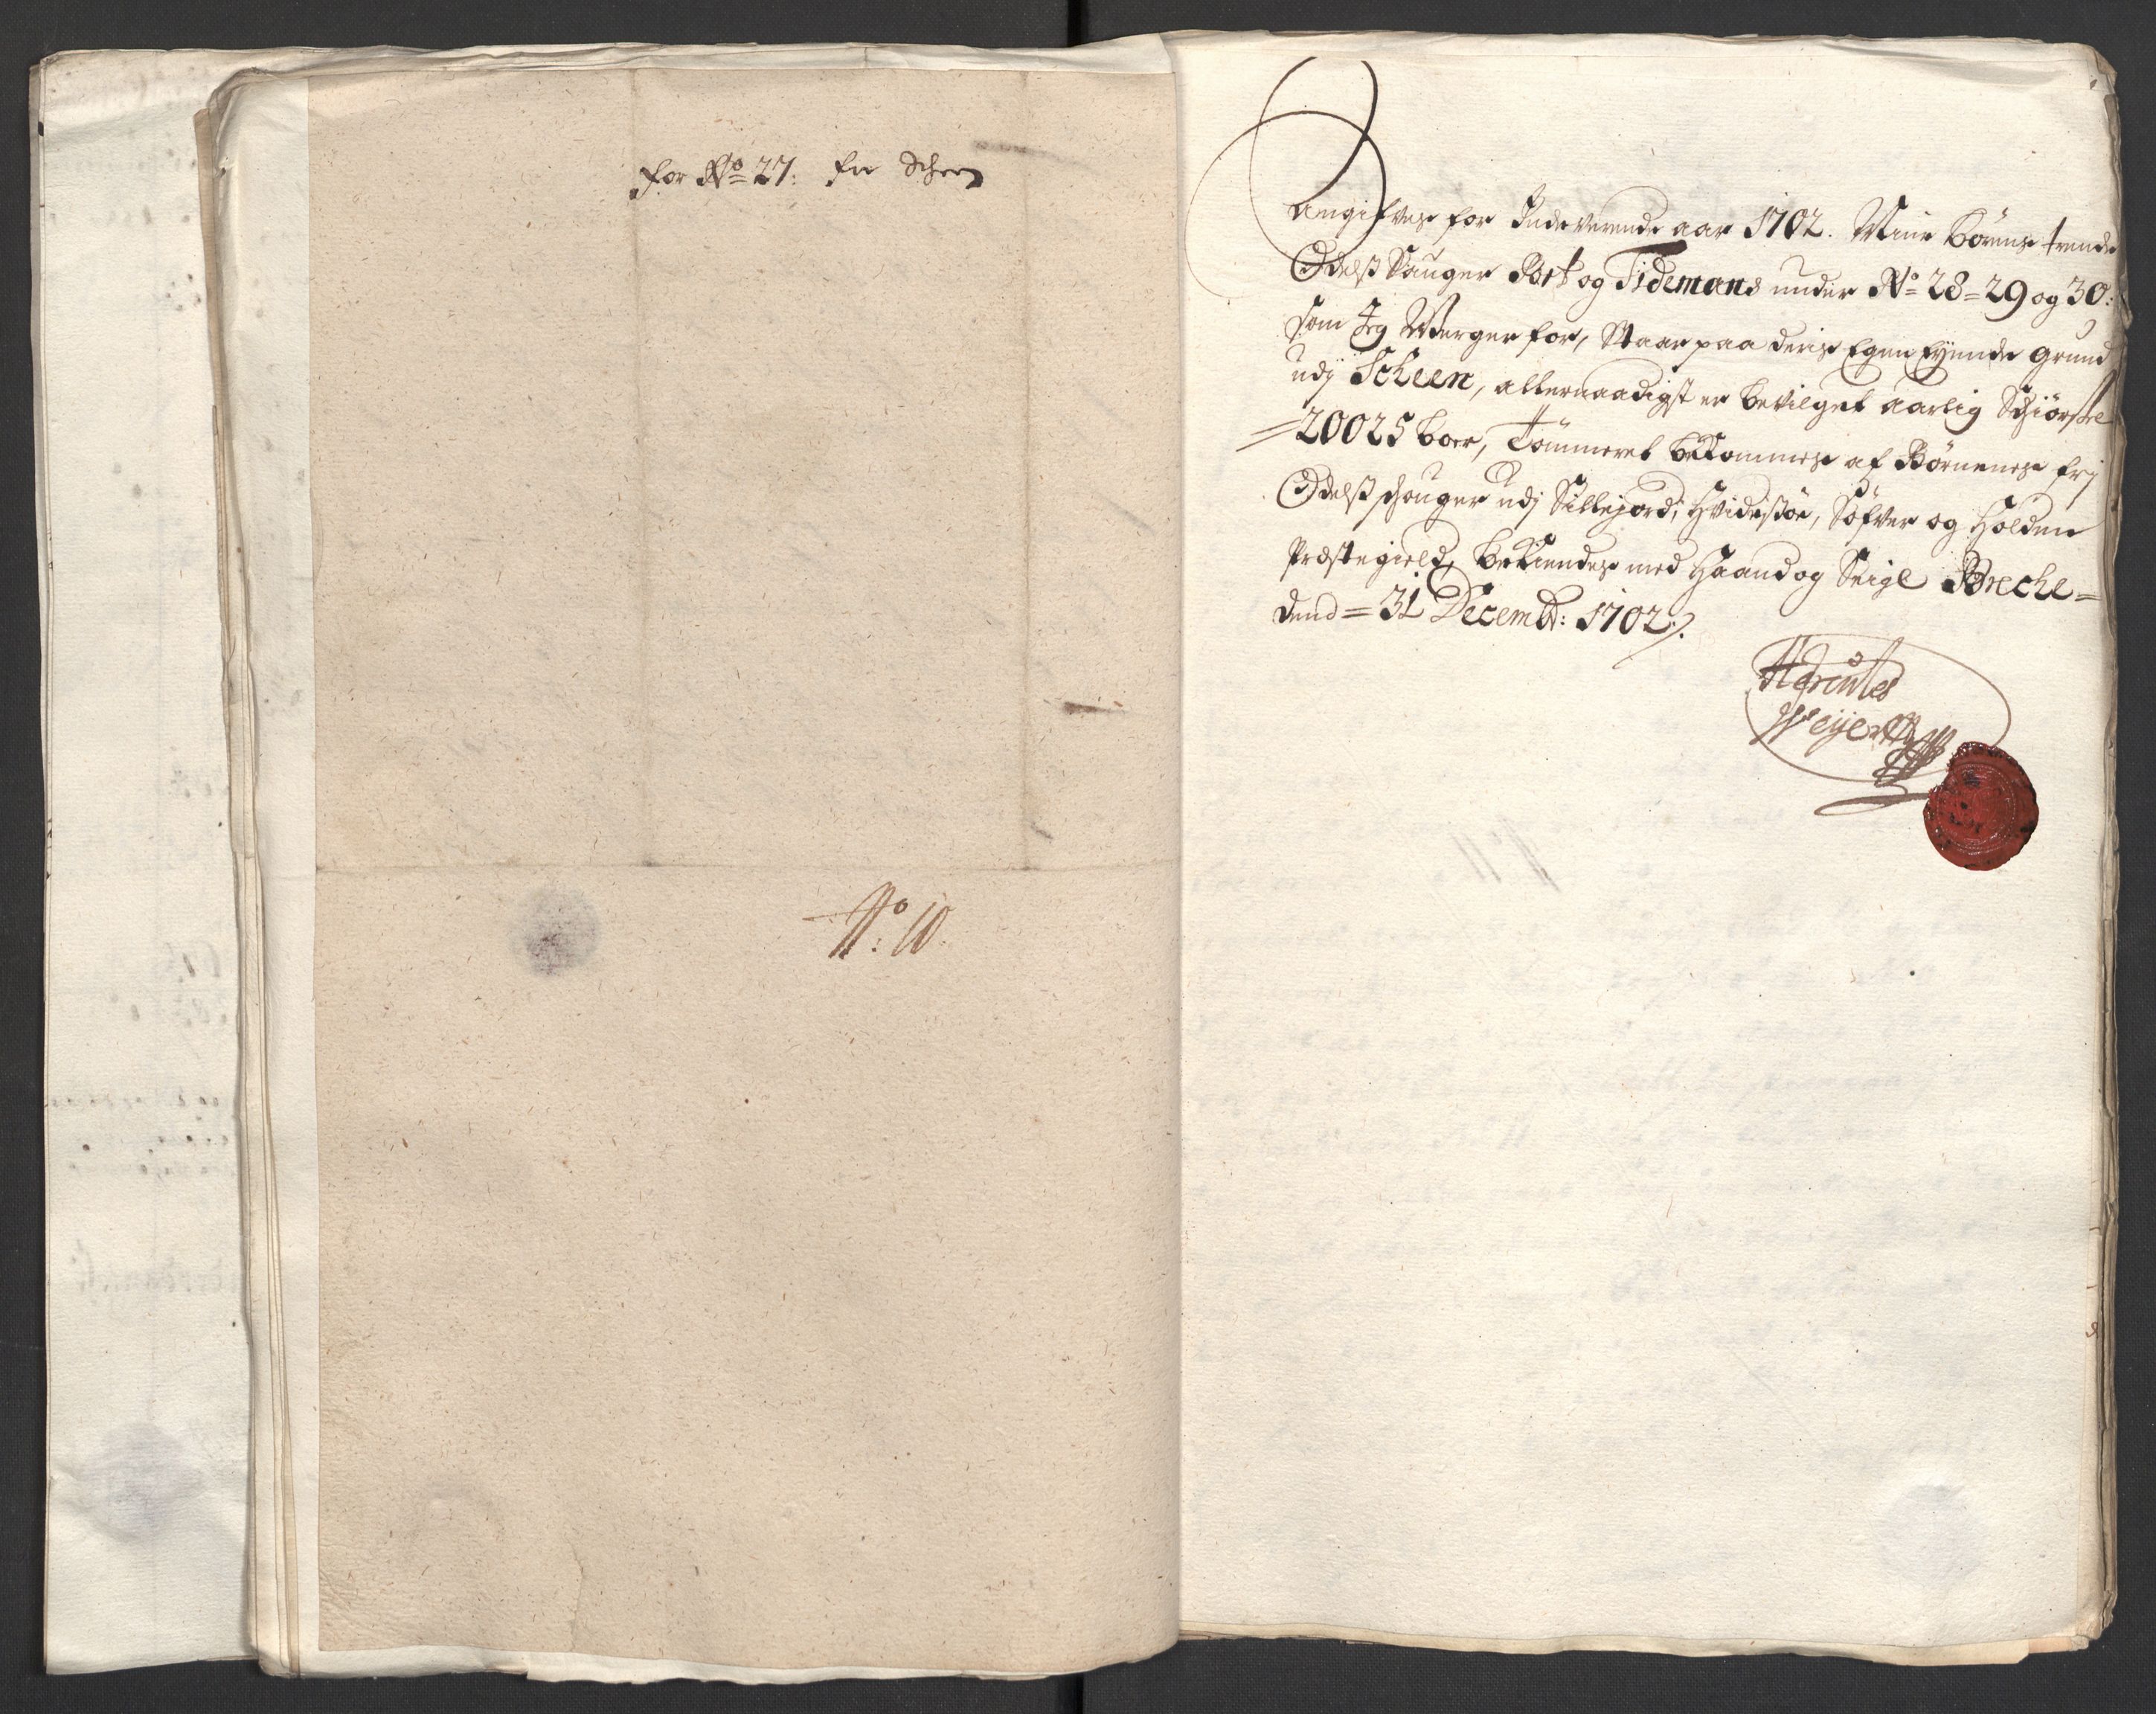 for No 27: fra Scheen
No: 10.
Angifves for Indeverende aar 1702. Mine Börns trende
Odelss Sauger Bort og Tidemans under No= 28=29 og 30:
som Jeg Werger for, Staar paa deris Egen Eyende grund
udj Scheen, allernaadigst er bevilget aarlig Schiörsel
=20025 boer, Tömmeret bekommes af Börnenes frj
Odelss schouger udj Sillejord, Hvidessöe, Söfver og Holden
Præstegield, bekiendes med Haand og Seigl Breche=
dend= 31 Decembr: 1702./.
Hercules
Weyer